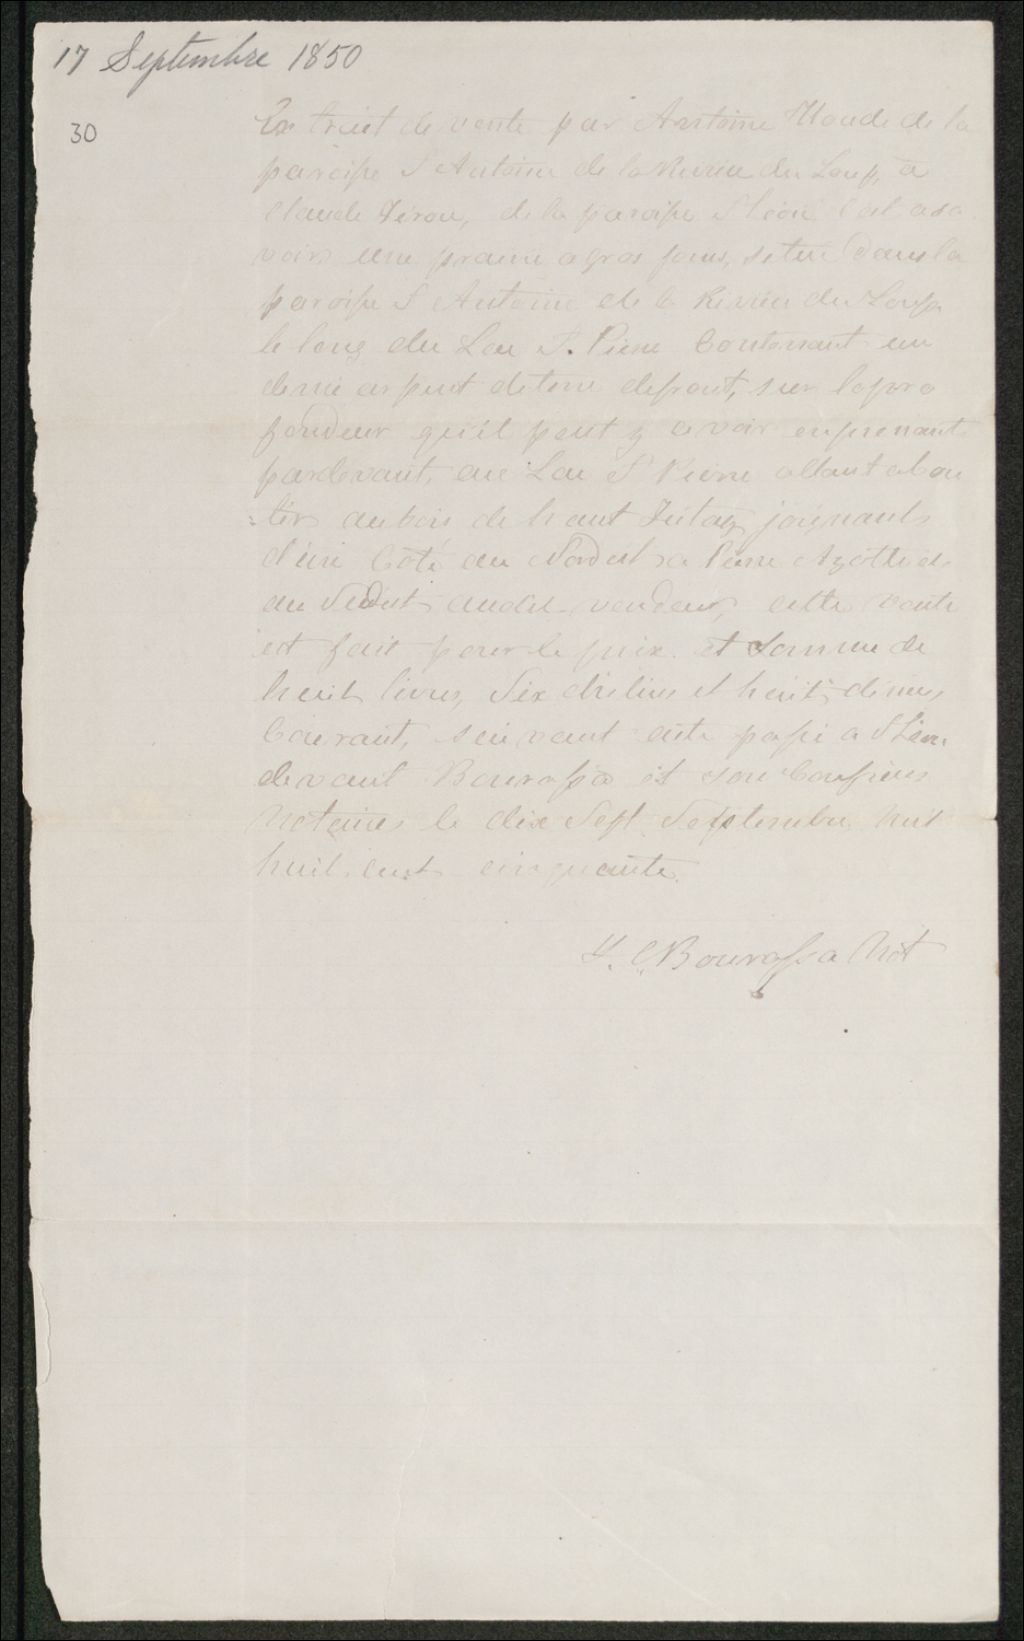 17 Septembre 1850
30
Extrait de vente par Antoine de la
paroisse S Antoine de la Riviere du Loup, a
Claude de la paroisse S Léon C'est a sa
voir une prairie a gros joncs, situé dans la
paroisse S Antoine de la Riviere du Loup
le long du Lac S. Pierre Contenant un
demie arpent de terre defront, sur la pro
fondeur qu'il peut y avoir enprenant
pardevant, au Lac S Pierre allant abou
=tir au bois de haut joignants
d'un Coté au Nordest a Pierre et
au audit vendeur, cette vente
est fait pour le prix et Somme de
huit livres, Six chelins et huit deniers
Courant, suivant acte passé a S Léon
devant Bourassa et son Confrères
Notaires le dix Sept Septembre mil
huit cent cinquante.
Bourassa Not